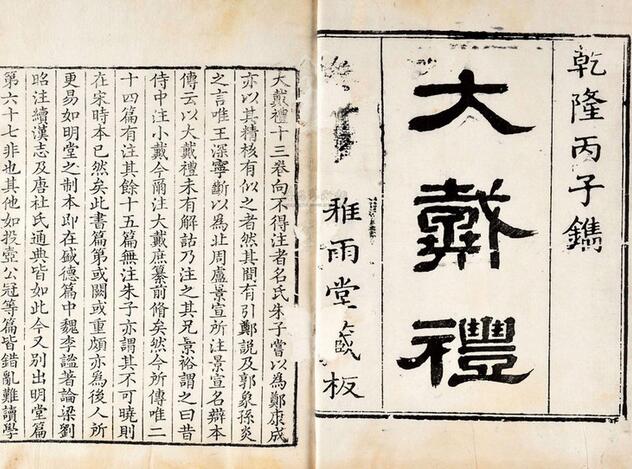 乾隆丙子鐫
大戴禮
雅雨堂藏板
大戴禮十三卷向不得注者名氏朱子嘗以爲鄭康成
亦以其精核有似之者然其間有引鄭說及郭象孫炎
之言唯王深寧斷以爲北周盧景宣所注景宣名辯本
傳云以大戴禮未有解詁乃注之其兄景裕謂之曰昔
侍中注小戴今爾注大戴庶纂前脩矣然今所傳唯二
十四篇有注其餘十五篇無注朱子亦謂其不可曉則
在宋時本已然矣此書篇第或闕或重頗亦爲後人所
更易如明堂之制本即在盛德篇中魏李謐著論梁劉
昭注續漢志及唐杜氏通典皆如此今又別出明堂篇
第六十七非也其他如投壺公冠等篇皆錯亂難讀學